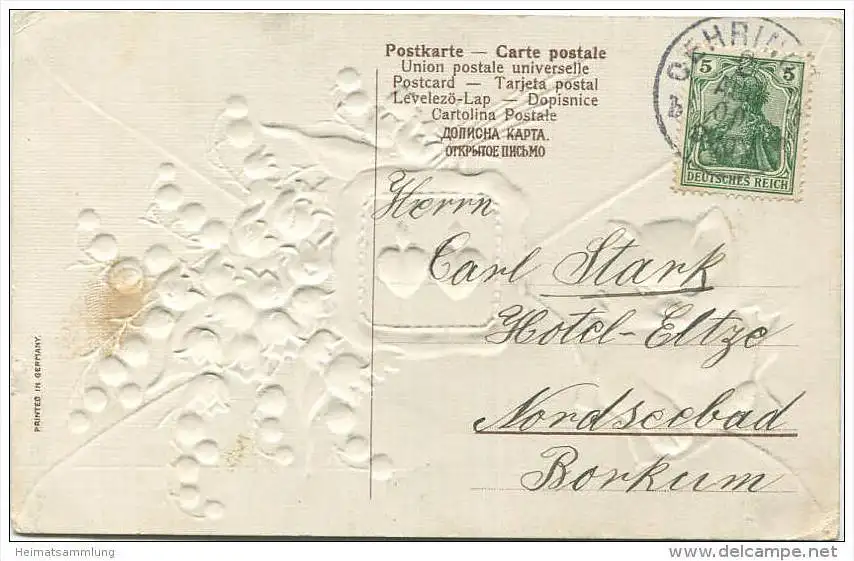 Postkarte — Carte postale
Union postale universelle
Postcard — Tarjeta postal
Levelezö-Lap — Dopisnice
Cartolina Postale
ДОПИСНА КАРТА.
ОТКРЫТОЕ ПИСЬМО
5 5
DEUTSCHES REICH
Herrn
Carl Stark
Hotel-Eltze
Nordseebad
Borkum
PRINTED IN GERMANY.
Heimatsammlung
www.delcampe.net